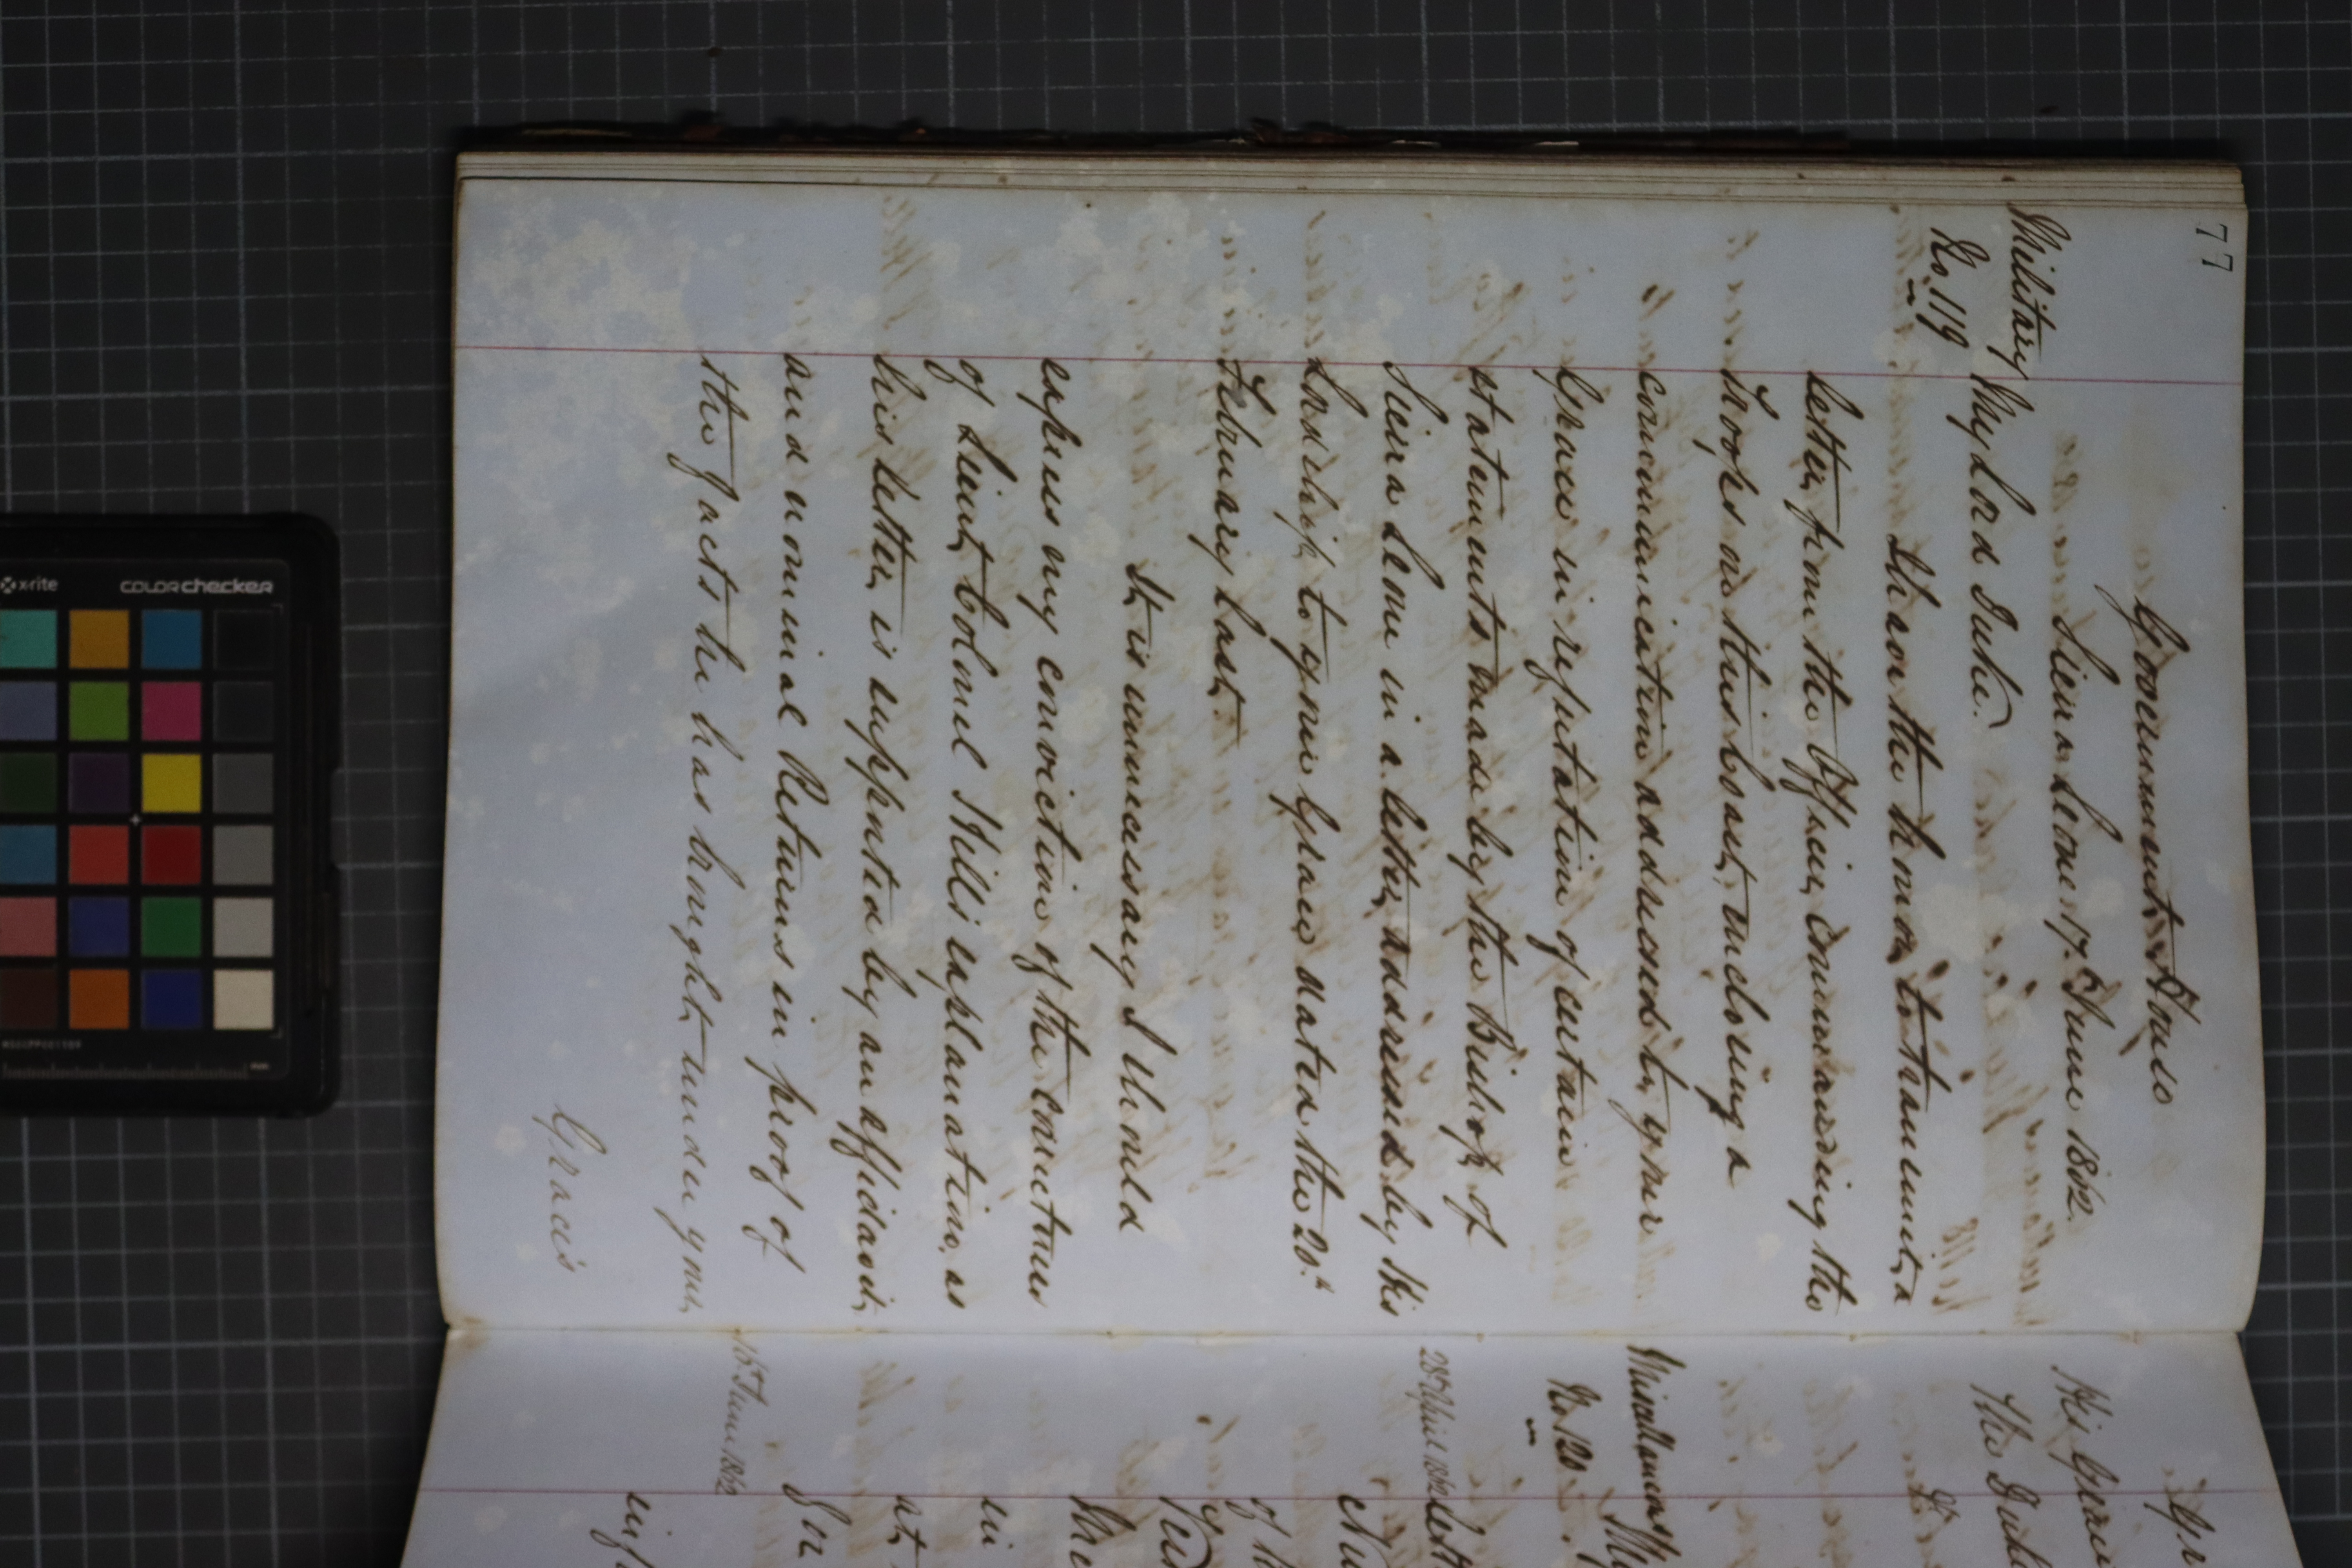 77
Government House
Sierra Leone 17th June 1862.
Military
No. 119
My Lord Duke,
I have the honor to transmit a
letter from the Officer Commanding the
Troops on this Coast, enclosing a
communication addressed to your
Grace in refutation of certain
statements made by the Bishop of
Sierra Leone in a letter addressed by His
Lordship to your Grace dated the 20th
February last.
It is unnecessary I should
express my conviction of the correctness
of Lieut. Colonel Hill's explanation, as
his letter is supported by an affidavit
and nominal Returns in proof of
the facts he has brought under your
Grace's
His Grace
The Duke
Miscellaneous
No. 120
28th April 1862
of
The
in
at
16th June 1862
x-rite
colorchecker